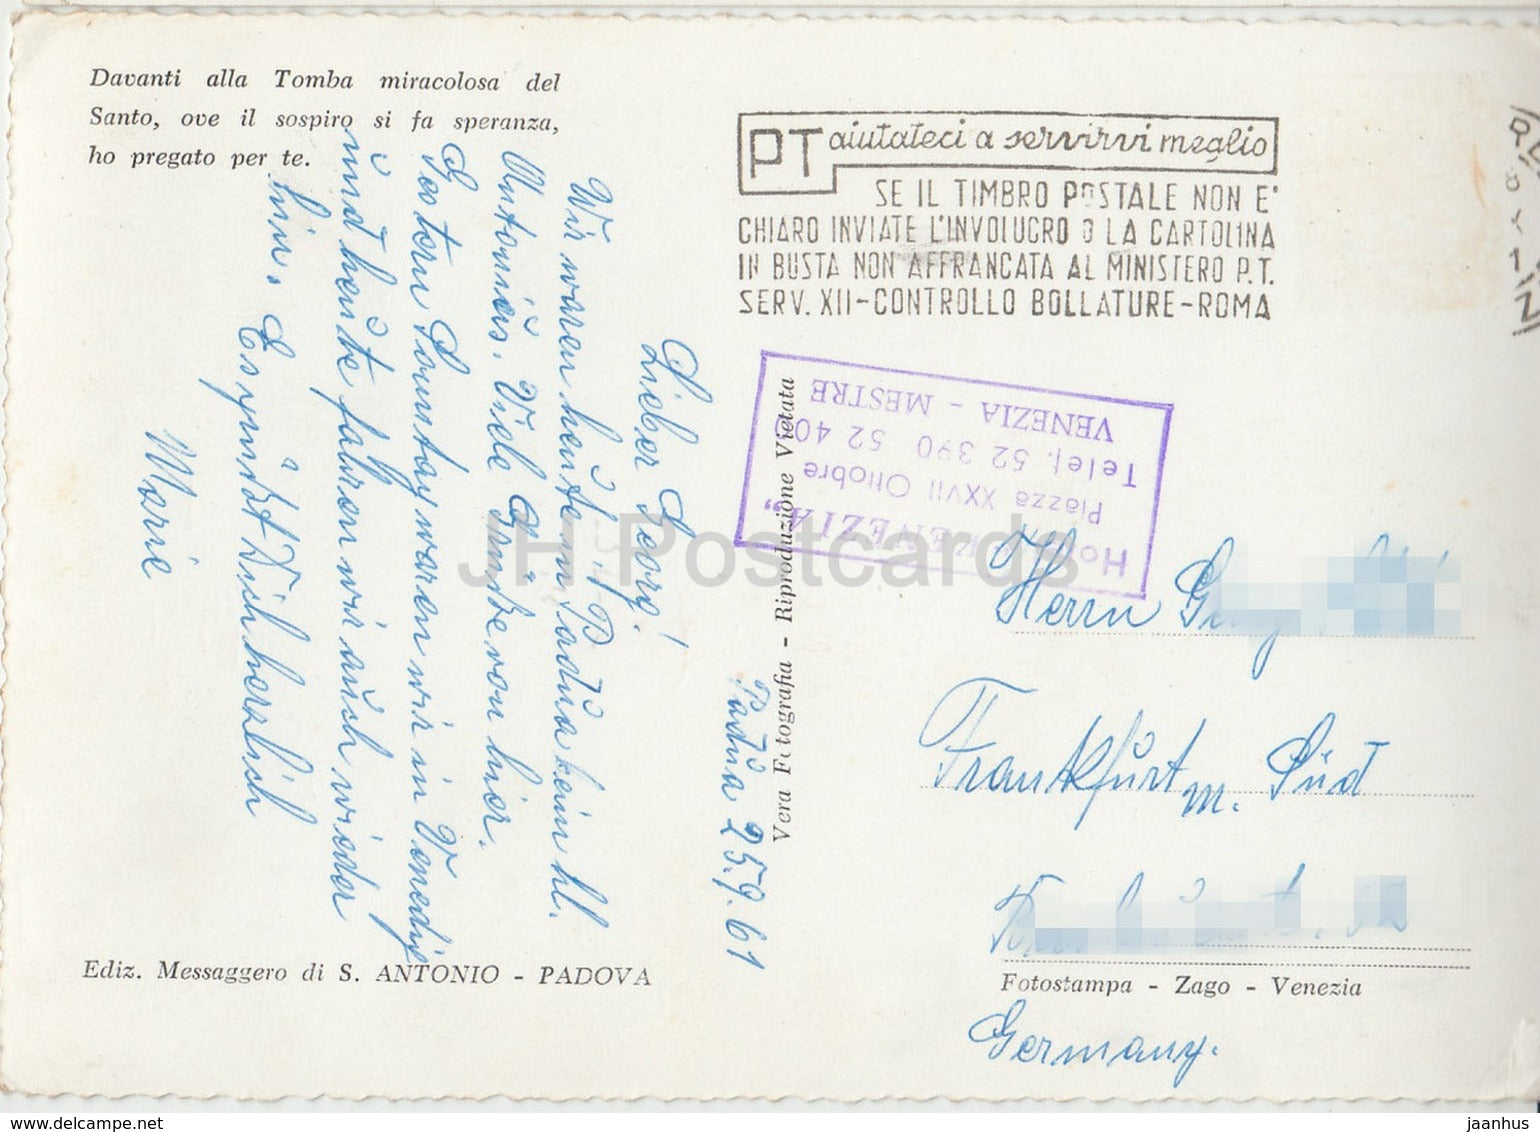 Davanti alla Tomba miracolosa del
Santo, ove il sospiro si fa speranza,
ho pregato per te.
Padua 25.9.61
Lieber Georg!
Wir waren heute in Padua beim hl.
Antonius. Viele Grüße von hier.
Gestern Sonntag waren wir in Venedig
und heute fahren wir auch wieder
hin. Es grüßt Dich herzlich
Marie
Ediz. Messaggero di S. ANTONIO - PADOVA
Vera Fotografia - Riproduzione Vietata
PT aiutateci a servirvi meglio
SE IL TIMBRO POSTALE NON E'
CHIARO INVIATE L'INVOLUCRO O LA CARTOLINA
IN BUSTA NON AFFRANCATA AL MINISTERO P.T.
SERV. XII-CONTROLLO BOLLATURE-ROMA
VENEZIA"
Piazza XXVII Ottobre
Telef. 52 390 52 40
VENEZIA - MESTRE
Herrn
Frankfurt m. Süd
Fotostampa - Zago - Venezia
Germany.
JH Postcards
www.delcampe.net
jaanhus